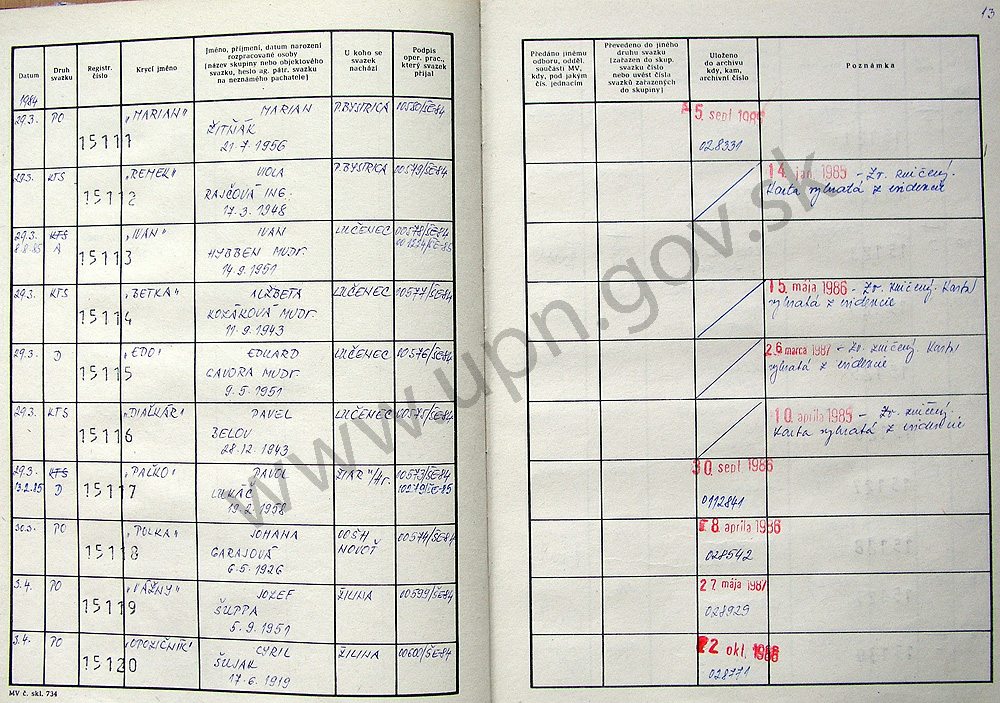 13
Datum
Druh svazku
Registr. číslo
Krycí jméno
Jméno, příjmení, datum narození
rozpracované osoby
(název skupiny nebo objektového
svazku, heslo ag. pátr. svazku
na neznámého pachatele)
U koho se
svazek
nachází
Podpis
oper. prac.,
který svazek
přijal
Předáno jinému
odboru, odděl.
součásti MV,
kdy, pod jakým
čís. jednacím
Převedeno do jiného
druhu svazku
(zařazen do skup.
svazku číslo
nebo uvést čísla
svazků zařazených
do skupiny)
Uloženo
do archivu
kdy, kam,
archivní číslo
Poznámka
1984
29.3. PO 15111 "MARIAN" MARIAN P.BYSTRICA 00580/ŠE-84 5. sept. 1985
ŽITŇÁK
21.7.1956 028331
29.3. KTS 15112 "REMEK" VIOLA P.BYSTRICA 00579/ŠE-84 14. jan. 1985 - Zv. zničený.
RAJČOVÁ ING. Karta vybratá z evidencie
17.3.1948
29.3. KTS 15113 "IVAN" IVAN LUČENEC 00578/ŠE-84
8.8.85 A HYBBEN MUDr. 001224/ŠE-85
14.9.1951
29.3. KTS 15114 "BETKA" ALŽBETA LUČENEC 00577/ŠE-84 15. mája 1986 - Zv. zničený. Karta
KOZÁKOVÁ MUDr. vybratá z evidencie
11.9.1943
29.3. D 15115 "EDO" EDUARD LUČENEC 00576/ŠE-84 26. marca 1987 - Zv. zničený. Karta
GAVORA MUDr. vybratá z evidencie
9.5.1951
29.3. KTS 15116 "DIAĽKÁR" PAVEL LUČENEC 00575/ŠE-84 10. apríla 1985 - Zv. zničený.
BELOV Karta vybratá z evidencie
28.12.1943
29.3. KTS 15117 "PAĽKO" PAVOL ŽIAR n/Hr. 00573/ŠE-84 30. sept. 1986
13.2.85 D LUKÁČ 00279/ŠE-85
19.2.1958 0112841
30.3. PO 15118 "POLKA" JOHANA 00574/ŠE-84 8. apríla 1986
GARAJOVÁ
6.5.1926 028542
3.4. PO 15119 "VÁŽNY" JOZEF ŽILINA 00599/ŠE-84 27. mája 1987
ŠUPPA
5.9.1951 028929
3.4. PO 15120 "OPOZIČNÍK" CYRIL ŽILINA 00600/ŠE-84 22 okt. 1986
ŠUJAK
17.6.1919 028771
MV č. skl. 734
www.upn.gov.sk